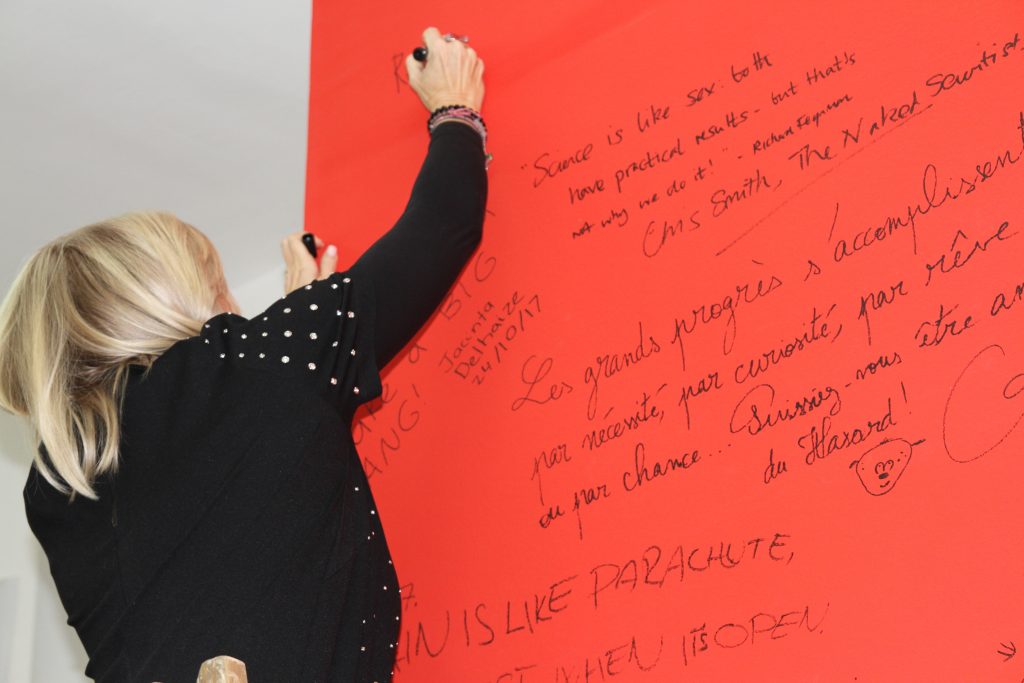 R
"Science is like sex: both
have practical results - but that's
not why we do it!" - Richard Feynman
Chris Smith, The Naked Scientist
Les grands progrès s'accomplissent
par nécessité, par curiosité, par rêve
ou par chance... Puissiez-vous être
du Hasard!
BIG
ANG!
Jacinta
Delhaize
24/10/17
7.
IS LIKE PARACHUTE,
WHEN ITS OPEN.